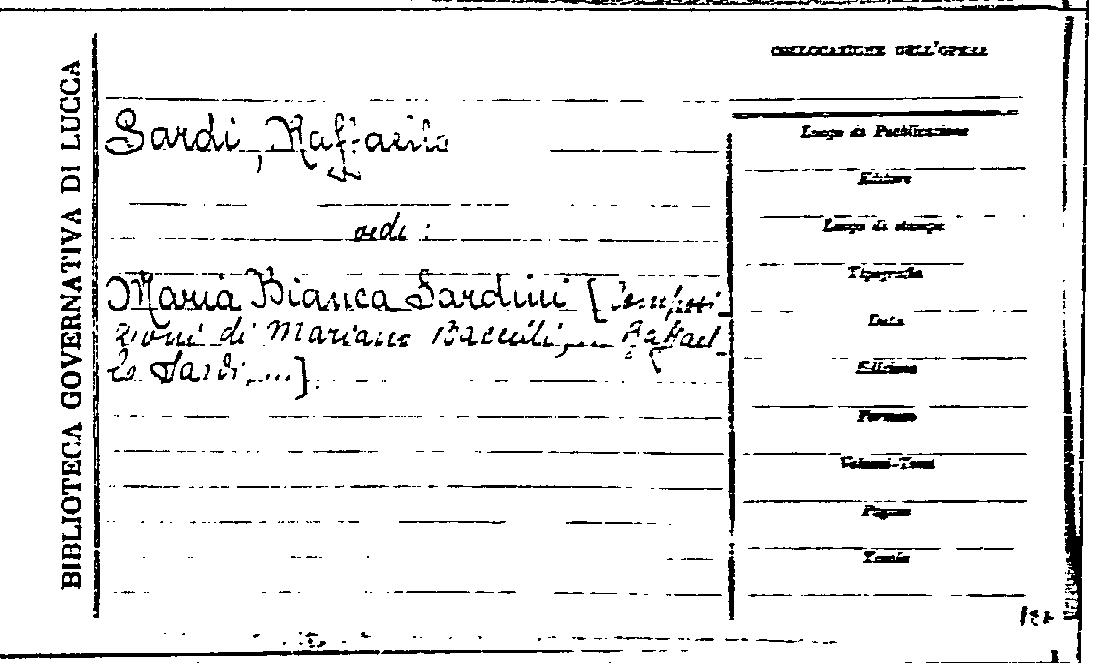 BIBLIOTECA GOVERNATIVA DI LUCCA
COLLOCAZIONE DELL'OPERA
Sardi, Raffaello
vedi :
Maria Bianca Sardini [Composi-
zioni di Mariano ... Raffael-
lo Sardi, ...].
Luogo di Pubblicazione
Editore
Luogo di stampa
Tipografia
Data
Edizione
Formato
Volumi-Tomi
Pagine
Tavole